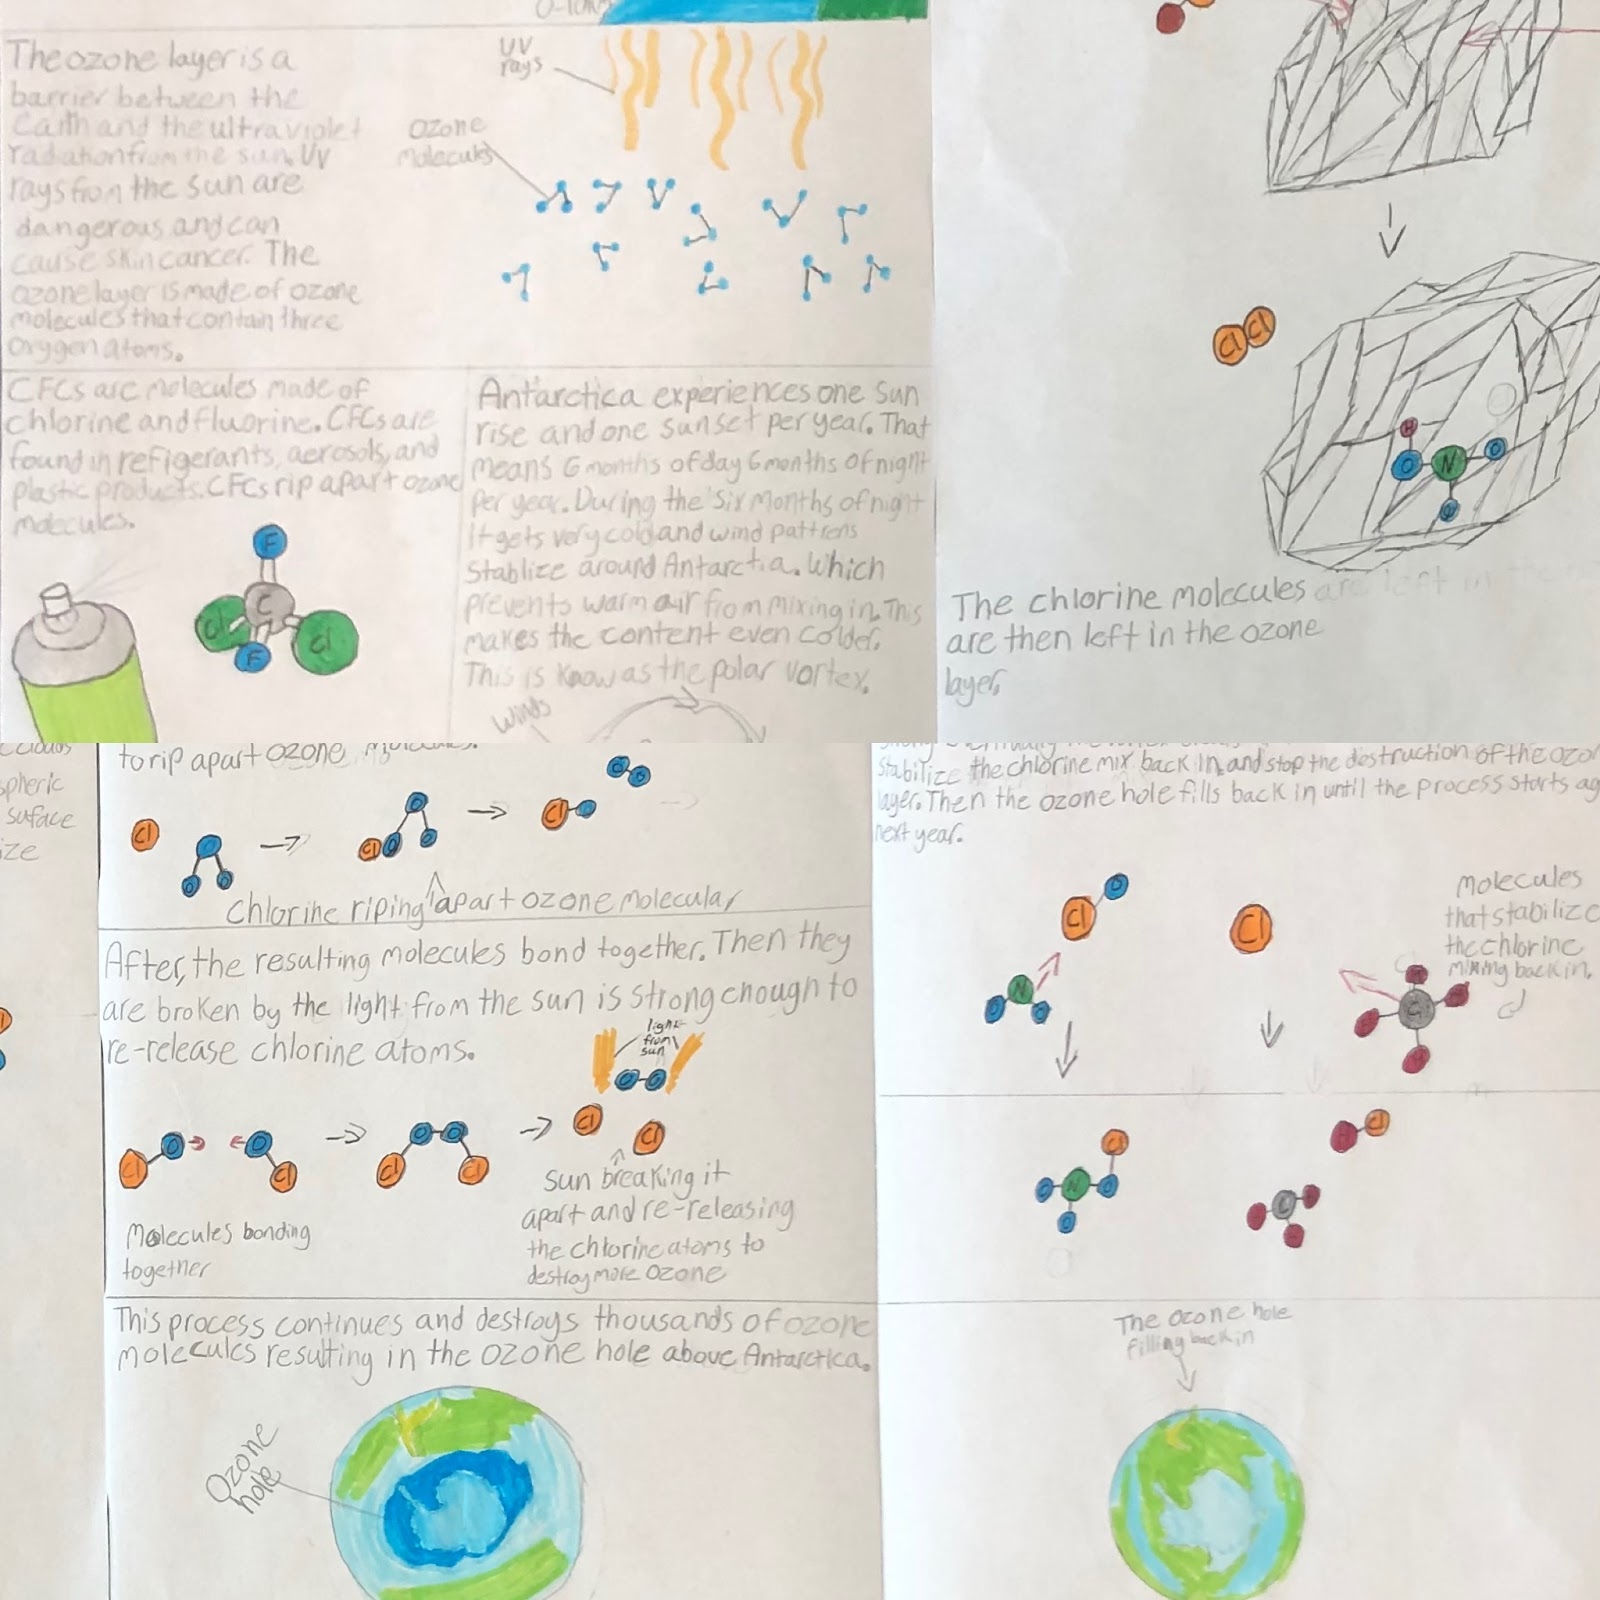 The ozone layer is a
barrier between the
Earth and the ultraviolet
radiation from the sun. UV
rays from the sun are
dangerous and can
cause skin cancer. The
ozone layer is made of ozone
molecules that contain three
oxygen atoms.
UV
rays
Ozone
molecules
CFCs are molecules made of
chlorine and fluorine. CFCs are
found in refigerants, aerosols, and
plastic products. CFCs rip apart ozone
molecules.
F
C
Cl
Cl
F
Antarctica experiences one sun
rise and one sunset per year. That
means 6 months of day 6 months of night
per year. During the six months of night
it gets very cold and wind pattrens
stablize around Antarctia. Which
prevents warm air from mixing in. This
makes the content even colder.
This is know as the polar vortex.
winds
Cl Cl
H
O N O
O
The chlorine molecules are left in the
are then left in the ozone
layer.
clouds
spheric
suface
ize
to rip apart ozone molecules.
O O
Cl
O
O O
O
Cl O O
Cl O
Chlorine riping apart ozone molecular
After, the resulting molecules bond together. Then they
are broken by the light from the sun is strong enough to
re-release chlorine atoms.
light
from
sun
O O
Cl O
O Cl
O O
Cl Cl
Cl
Cl
Molecules bonding
together
Sun breaking it
apart and re-releasing
the chlorine atoms to
destroy more ozone
This process continues and destroys thousands of ozone
molecules resulting in the ozone hole above Antarctica.
Ozone
hole
stabilize the chlorine mix back in, and stop the destruction of the ozon
layer. Then the ozone hole fills back in until the process starts ag
next year.
Cl O
Cl
N
O O
Molecules
that stabilize
the chlorine
mixing back in.
C
H
H
H
H
Cl
O N O
O
H Cl
C H
H
H
The ozone hole
filling back in